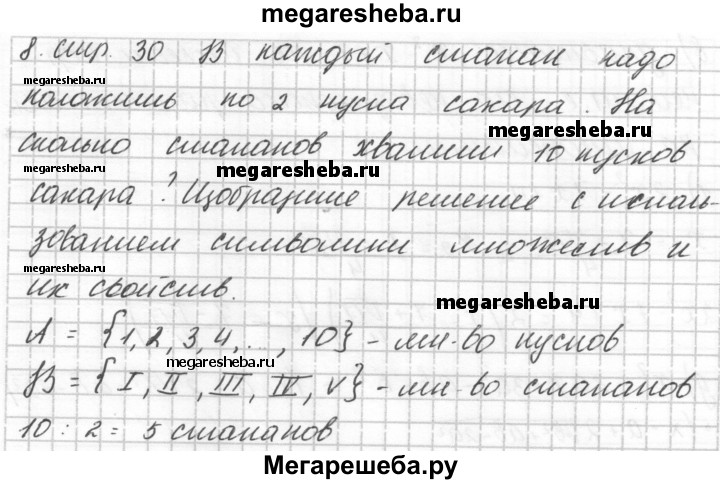 megaresheba.ru
8. стр. 30 В каждый стакан надо
megaresheba.ru
положить по 2 куска сахара. На
megaresheba.ru
сколько стаканов хватит 10 кусков
megaresheba.ru megaresheba.ru
сахара? Изобразите решение с исполь-
зованием символики множеств и
megaresheba.ru
их свойств.
megaresheba.ru
A = {1, 2, 3, 4, ..., 10} - мн-во кусков
megaresheba.ru
B = {I, II, III, IV, V} - мн-во стаканов
10 : 2 = 5 стаканов
Мегарешеба.ру